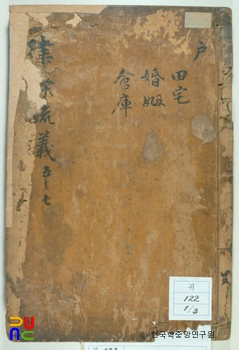 户
田宅
婚姻
倉庫
律条疏議 五之七
귀
122
1/3
© 한국학중앙연구원